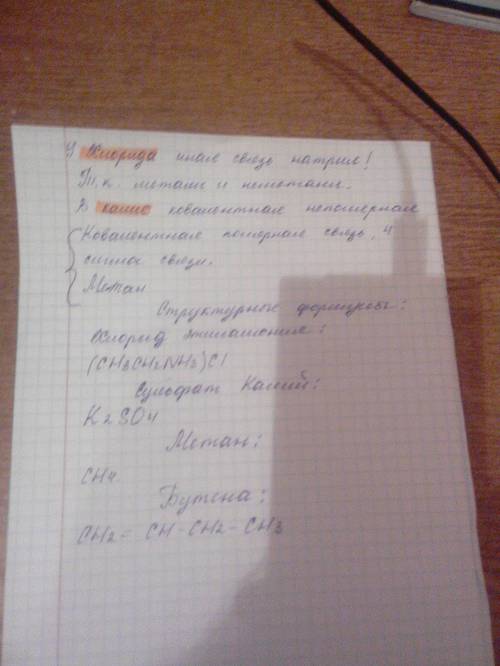 У Хлорида иная связь натрия!
Т.к. металл и неметалл.
В калие ковалентная неполярная
Ковалентная полярная связь, 4
сигма связи.
Метан
Структурные формулы:
Хлорид этиламмония:
(CH3CH2NH3)Cl
Сульфат Калий:
K2SO4
Метан:
CH4.
Бутена:
CH2 = CH - CH2 - CH3